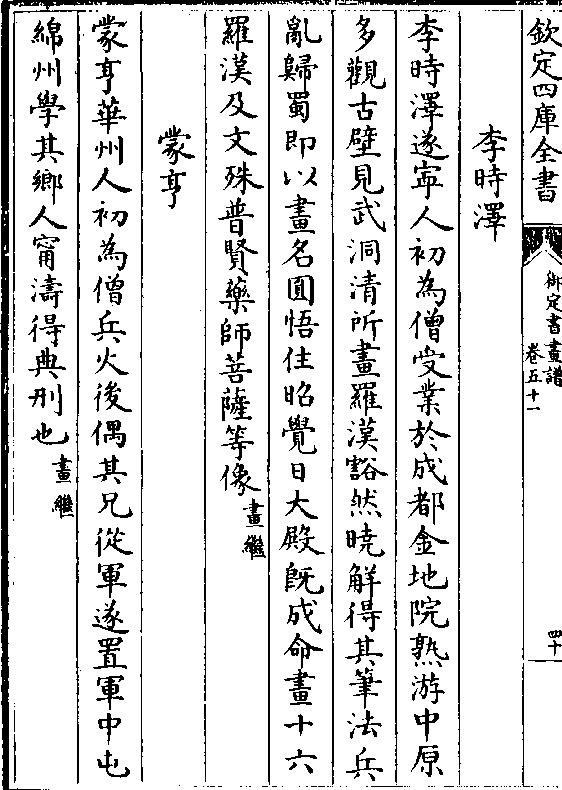 欽定四庫全書
御定書畫譜
卷五十一
四十
李時澤
李時澤遂寧人初為僧受業於成都金地院熟游中原
多觀古壁見武洞清所畫羅漢豁然曉解得其筆法兵
亂歸蜀即以畫名圓悟住昭覺日大殿既成命畫十六
羅漢及文殊普賢藥師菩薩等像畫繼
蒙亨
蒙亨華州人初為僧兵火後偶其兄從軍遂置軍中屯
綿州學其鄉人甯濤得典刑也畫繼